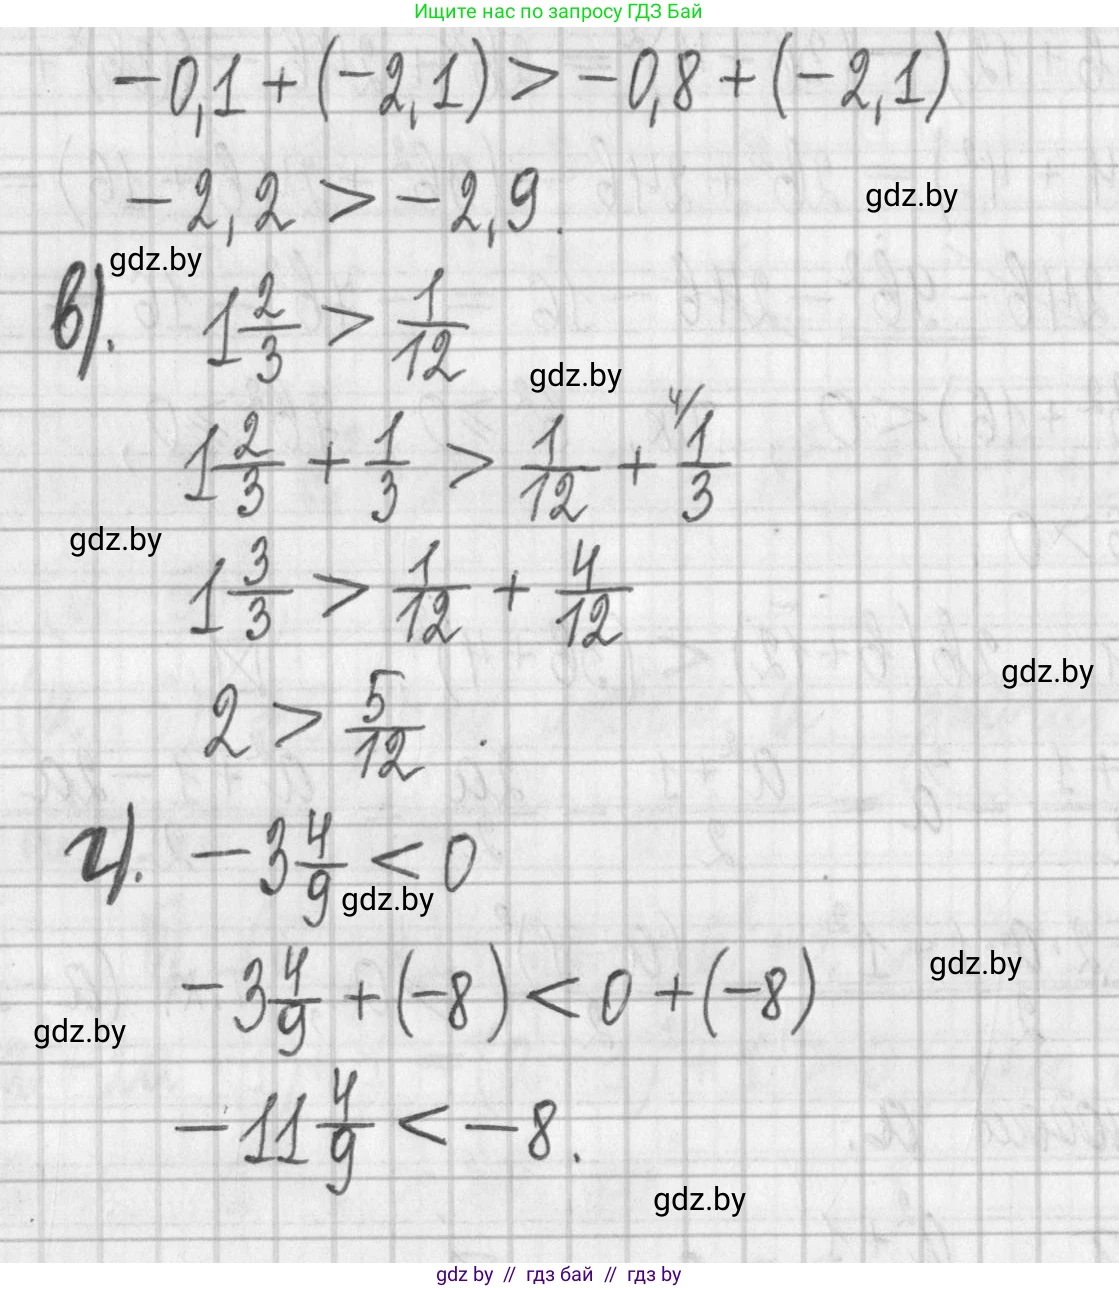 Ищите нас по запросу ГДЗ Бай
-0,1 + (-2,1) > -0,8 + (-2,1)
-2,2 > -2,9.
gdz.by
gdz.by
в). 1 2/3 > 1/12
gdz.by
1 2/3 + 1/3 > 1/12 + 4/ 1/3
gdz.by
1 3/3 > 1/12 + 4/12
gdz.by
2 > 5/12.
г). -3 4/9 < 0
gdz.by
gdz.by
-3 4/9 + (-8) < 0 + (-8)
gdz.by
-11 4/9 < -8.
gdz.by
gdz by // гдз бай // гдз by